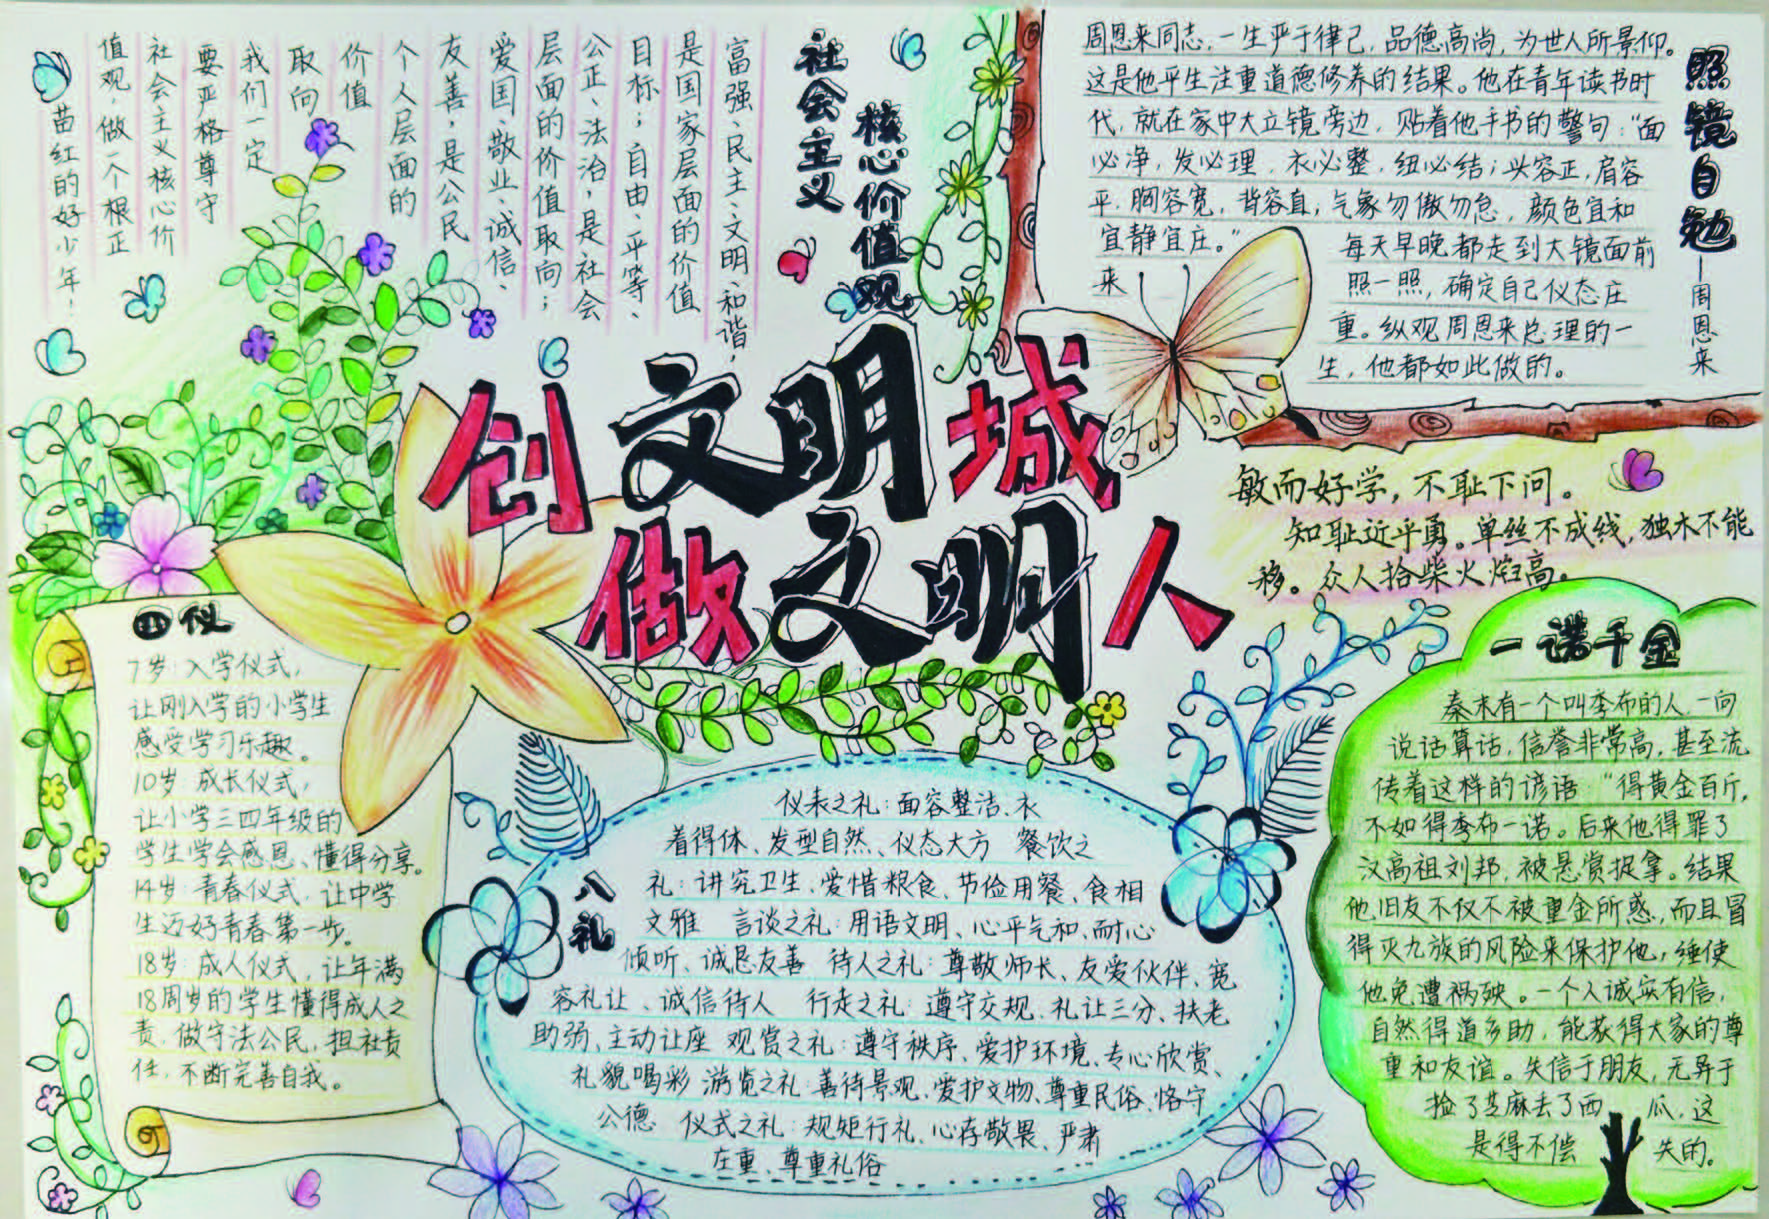 创文明城
做文明人
社会主义
核心价值观
富强、民主、文明、和谐，
是国家层面的价值
目标；自由、平等、
公正、法治，是社会
层面的价值取向；
爱国、敬业、诚信、
友善，是公民
个人层面的
价值
取向
我们一定
要严格尊守
社会主义核心价
值观，做一个根正
苗红的好少年！
照镜自勉
—周恩来
周恩来同志，一生严于律己，品德高尚，为世人所景仰。
这是他平生注重道德修养的结果。他在青年读书时
代，就在家中大立镜旁边，贴着他手书的警句：“面
必净，发必理，衣必整，纽必结；头容正，肩容
平，胸容宽，背容直；气象勿傲勿怠，颜色宜和
宜静宜庄。”
每天早晚都走到大镜面前
来
照一照，确定自己仪态庄
重。纵观周恩来总理的一
生，他都如此做的。
敏而好学，不耻下问。
知耻近乎勇。单丝不成线，独木不能
移。众人拾柴火焰高。
四仪
7岁：入学仪式，
让刚入学的小学生
感受学习乐趣。
10岁：成长仪式，
让小学三四年级的
学生学会感恩、懂得分享。
14岁：青春仪式，让中学
生迈好青春第一步。
18岁：成人仪式，让年满
18周岁的学生懂得成人之
责，做守法公民，担社责
任，不断完善自我。
八礼
仪表之礼：面容整洁、衣
着得体、发型自然、仪态大方 餐饮之
礼：讲究卫生、爱惜粮食、节俭用餐、食相
文雅 言谈之礼：用语文明、心平气和、耐心
倾听、诚恳友善 待人之礼：尊敬师长、友爱伙伴、宽
容礼让、诚信待人 行走之礼：遵守交规、礼让三分、扶老
助弱、主动让座 观赏之礼：遵守秩序、爱护环境、专心欣赏、
礼貌喝彩 游览之礼：善待景观、爱护文物、尊重民俗、恪守
公德 仪式之礼：规矩行礼、心存敬畏、严肃
庄重、尊重礼俗
一诺千金
秦末有一个叫季布的人，一向
说话算话，信誉非常高，甚至流
传着这样的谚语：“得黄金百斤，
不如得季布一诺。后来他得罪了
汉高祖刘邦，被悬赏捉拿。结果
他旧友不仅不被重金所惑，而且冒
得灭九族的风险来保护他，继使
他免遭祸殃。一个人诚实有信，
自然得道多助，能获得大家的尊
重和友谊。失信于朋友，无异于
捡了芝麻去了西瓜，这
是得不偿失的。